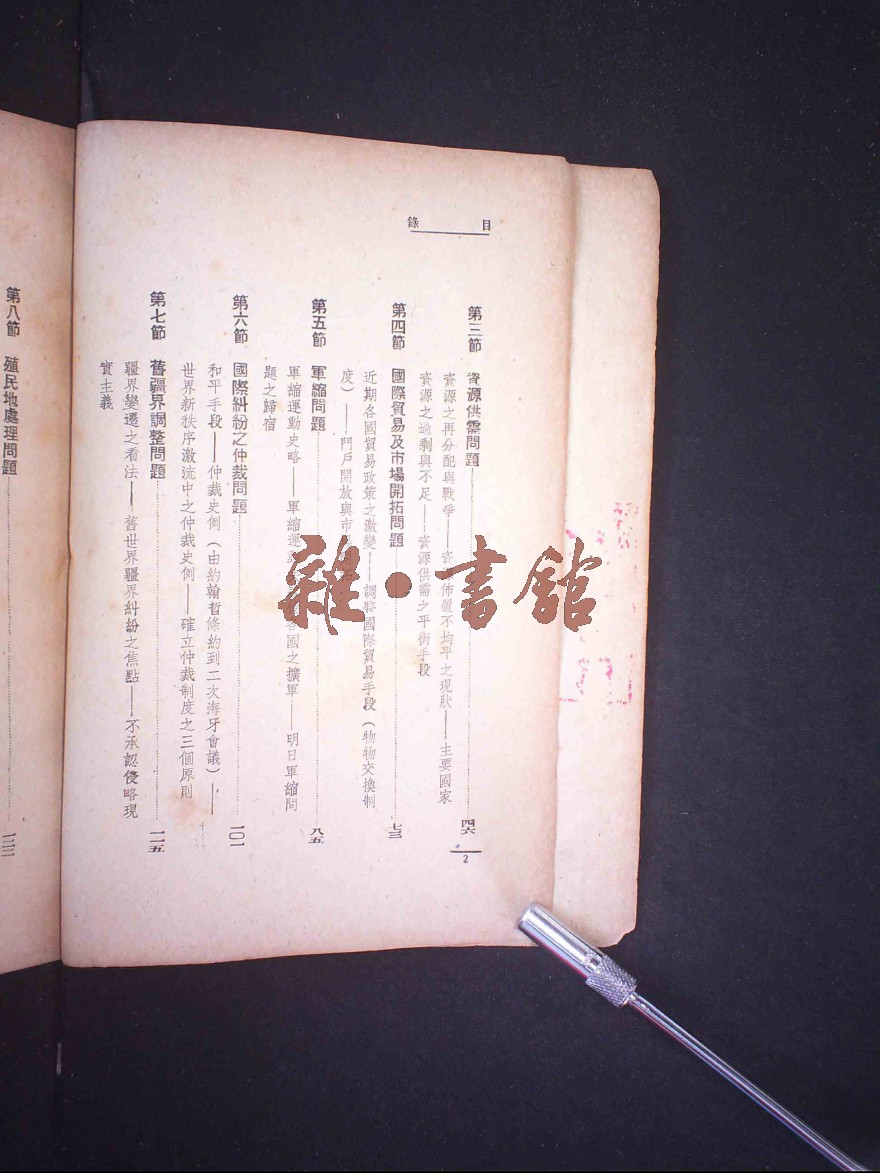 目錄
第三節 資源供需問題 四六
資源之再分配與戰爭——資源佈置不均平之現狀——主要國家
資源之過剩與不足——資源供需之平衡手段
第四節 國際貿易及市場開拓問題 七三
近期各國貿易政策之激變——調整國際貿易手段（物物交換制
度）——門戶開放與市
第五節 軍縮問題 八五
軍縮運動史略——軍縮運動 各國之擴軍——明日軍縮問
題之歸宿
第六節 國際糾紛之仲裁問題 一〇一
和平手段——仲裁史例（由約翰哲條約到二次海牙會議）——
世界新秩序激流中之仲裁史例——確立仲裁制度之三個原則
第七節 舊疆界調整問題 一一五
疆界變遷之看法——舊世界疆界糾紛之焦點——不承認侵略現
實主義
2
第八節 殖民地處理問題 一三二
雜·書館